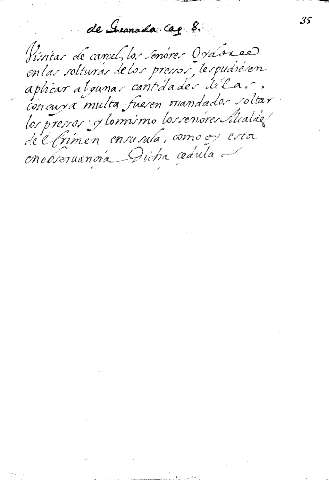 de Granada. Cap. 8. 35
Visitas de carcel, los señores Oydores
en las solturas de los pressos, les pudiesen
aplicar algunas cantidades de las,
con cuya multa fuesen mandados soltar
los pressos: y lo mismo los señores Alcaldes
de el Crimen en su sala, como oy esta
en observanzia Dicha cedula